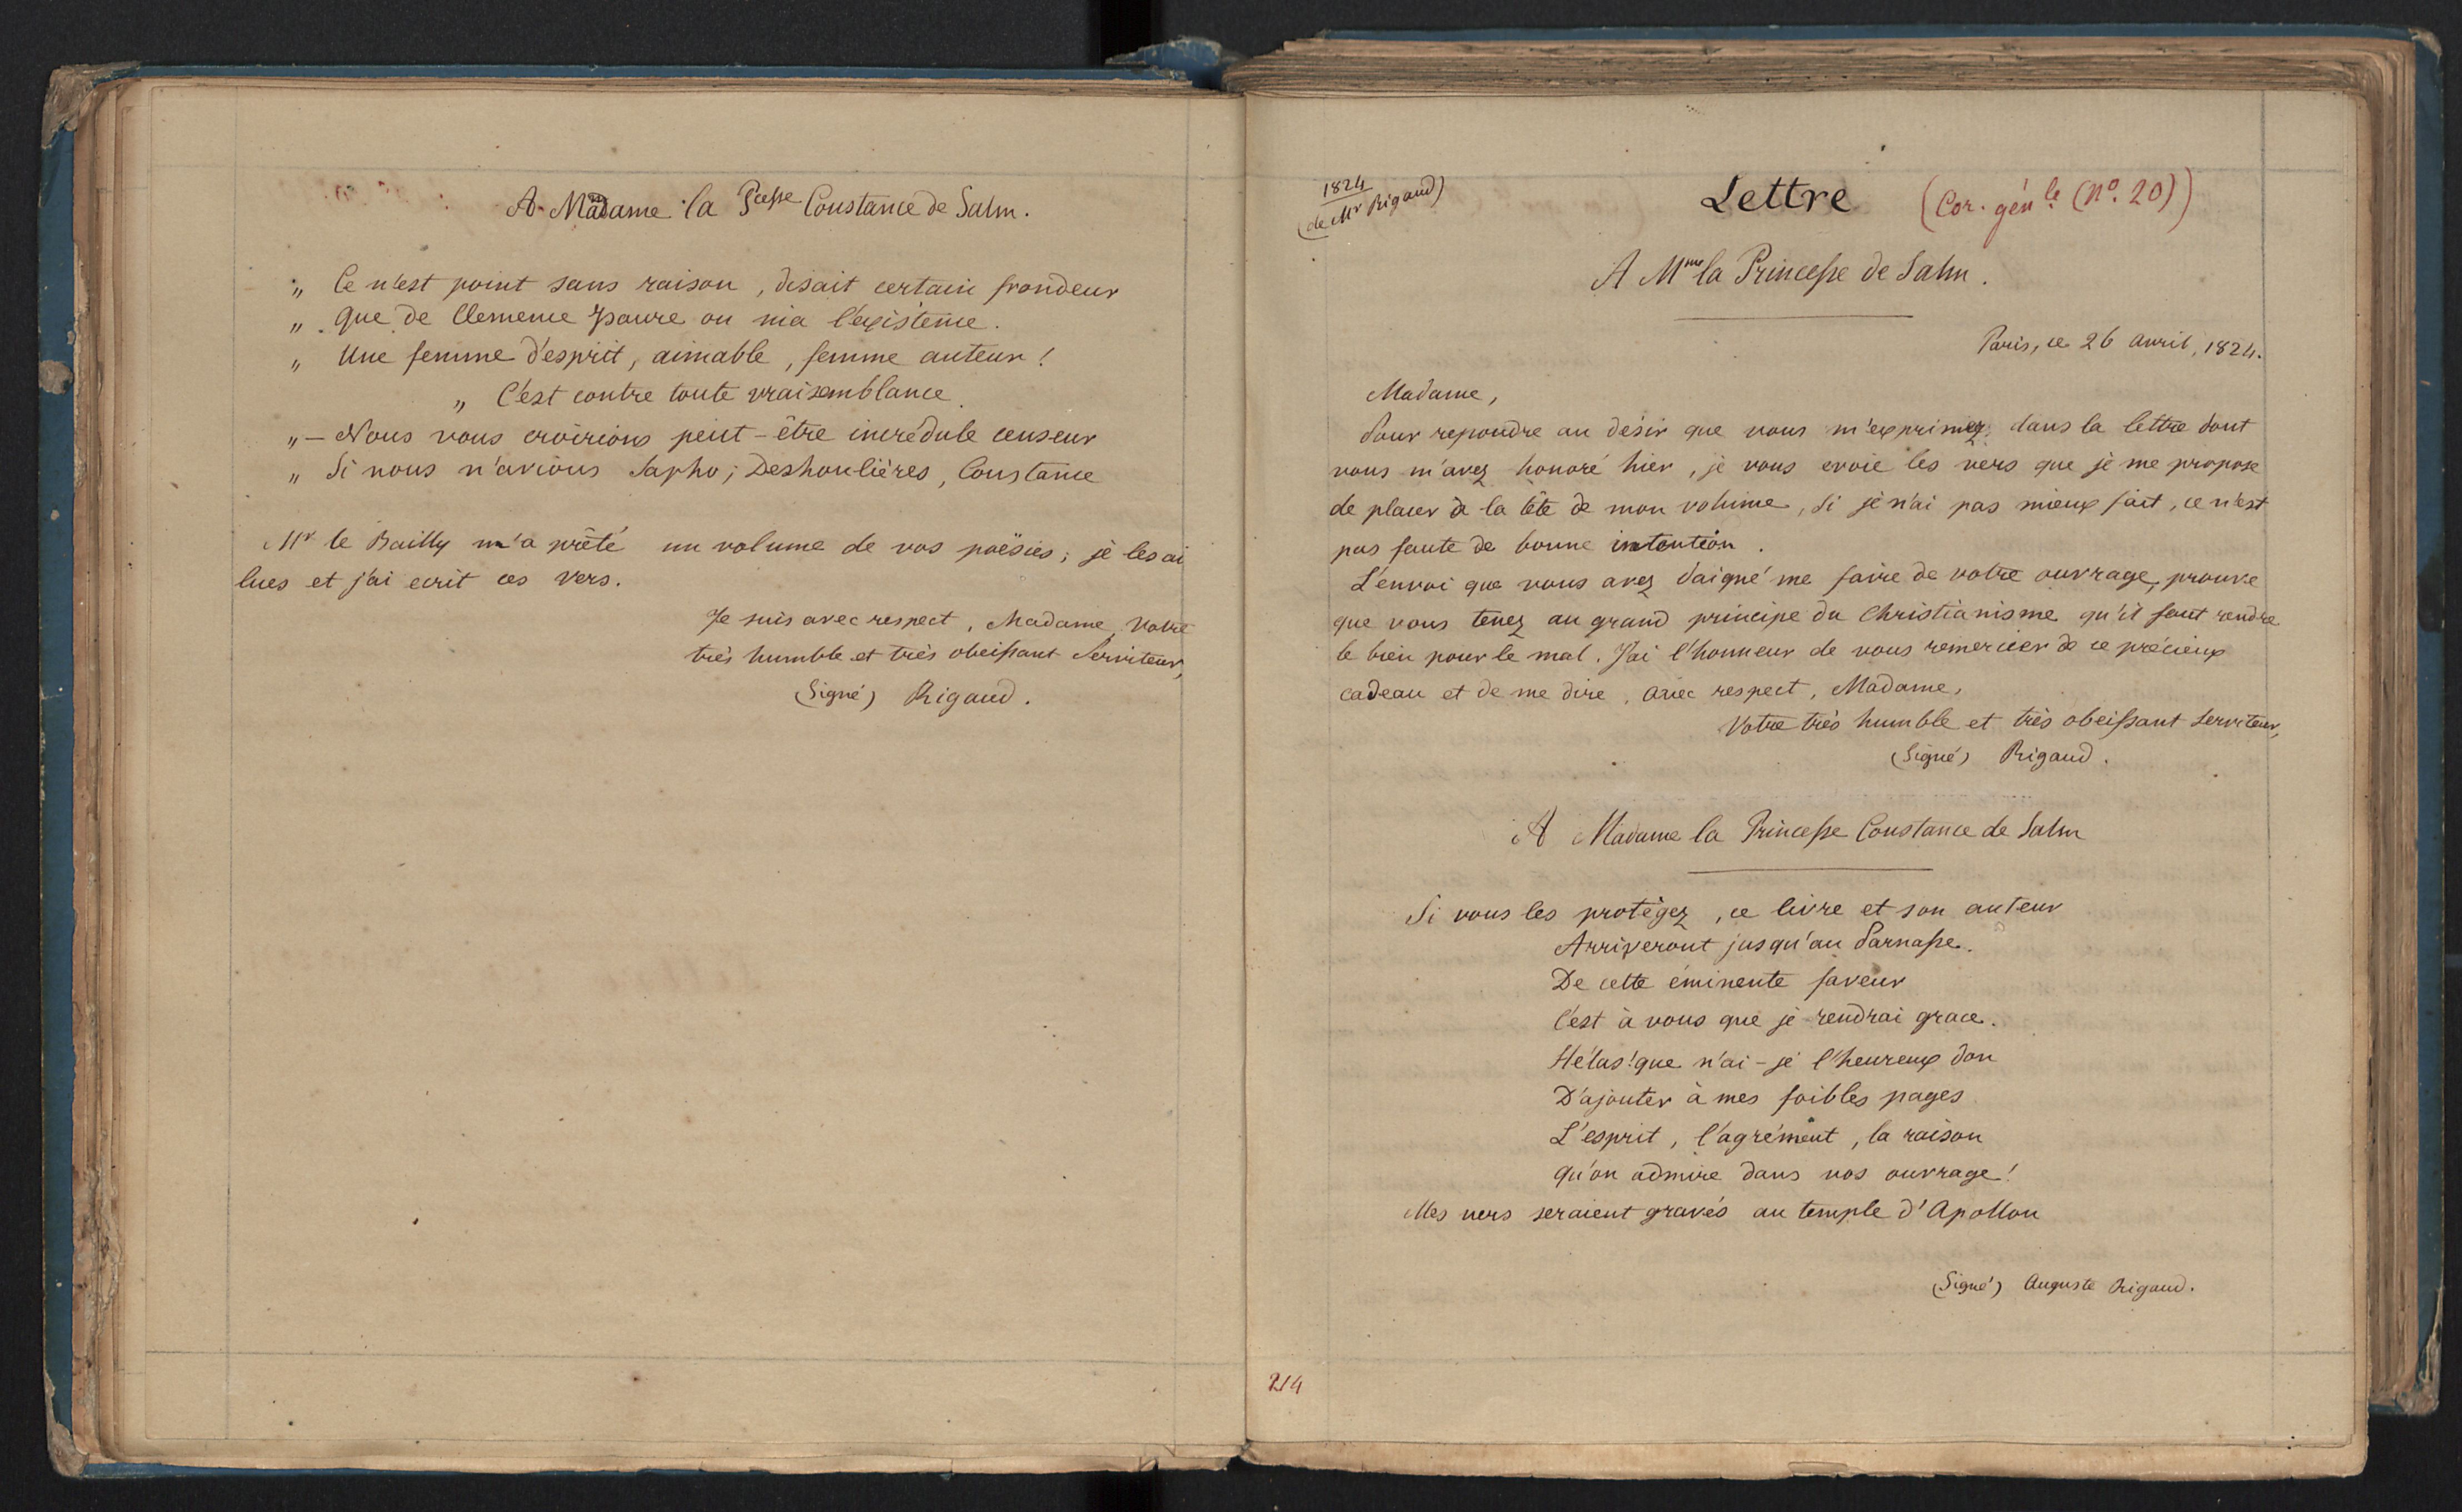 A Madame la Pcesse Constance de Salm.
„ Ce n'est point sans raison, disait certain frondeur
„ Que de Clemence Isaure on nia l'existence.
„ Une femme d'esprit, aimable, femme auteur !
„ C'est contre toute vraisemblance.
„ — Nous vous croirions peut-être incrédule censeur
„ Si nous n'avions Sapho, Deshoulières, Constance
Mr le Bailly m'a prêté un volume de vos poësies ; je les ai
lues et j'ai ecrit ces vers.
Je suis avec respect, Madame, Votre
très humble et très obeissant Serviteur,
(Signé) Rigaud.
1824
(de Mr Rigaud)
Lettre (Cor. génle (No. 20))
A Mme la Princesse de Salm.
Paris, ce 26 avril, 1824.
Madame,
Pour repondre au désir que vous m'exprimez dans la lettre dont
vous m'avez honoré hier, je vous evoie les vers que je me propose
de placer à la tête de mon volume, Si je n'ai pas mieux fait, ce n'est
pas faute de bonne intention.
L'envoi que vous avez daigné me faire de votre ouvrage, prouve
que vous tenez au grand principe du Christianisme qu'il faut rendre
le bien pour le mal. J'ai l'honneur de vous remercier de ce précieux
cadeau et de me dire, avec respect, Madame,
Votre très humble et très obeissant Serviteur,
(Signé) Rigaud.
A Madame la Princesse Constance de Salm
Si vous les protégez, ce livre et son auteur
Arriveront jusqu'au Parnasse.
De cette éminente faveur
C'est à vous que je rendrai grace.
Hélas ! que n'ai-je l'heureux don
D'ajouter à mes foibles pages
L'esprit, l'agrément, la raison
Qu'on admire dans vos ouvrage !
Mes vers seraient gravés au temple d'Apollon
(Signé) Auguste Rigaud.
214